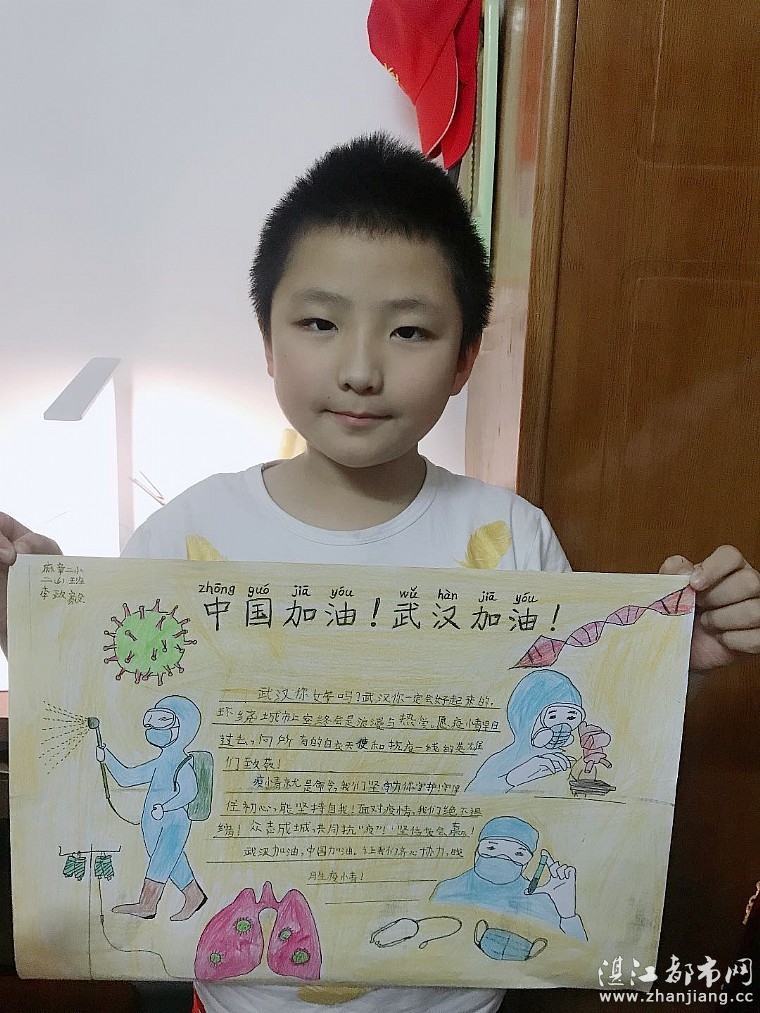 麻章二小
二(4)班
zhōng guó jiā yóu wǔ hàn jiā yóu
中国加油！武汉加油！
武汉你好吗？武汉你一定会好起来的，
城市上空终会是浪漫与热望。愿疫情早日
过去，向所有的白衣天使和抗疫一线的英雄
们致敬！
疫情就是命令，我们坚守
住初心，能坚持自我！面对疫情，我们绝不退
缩！众志成城，共同抗"疫"！坚信
武汉加油，中国加油。让我们齐心协力，战
胜疫情！
湛江都市网
www.zhanjiang.cc